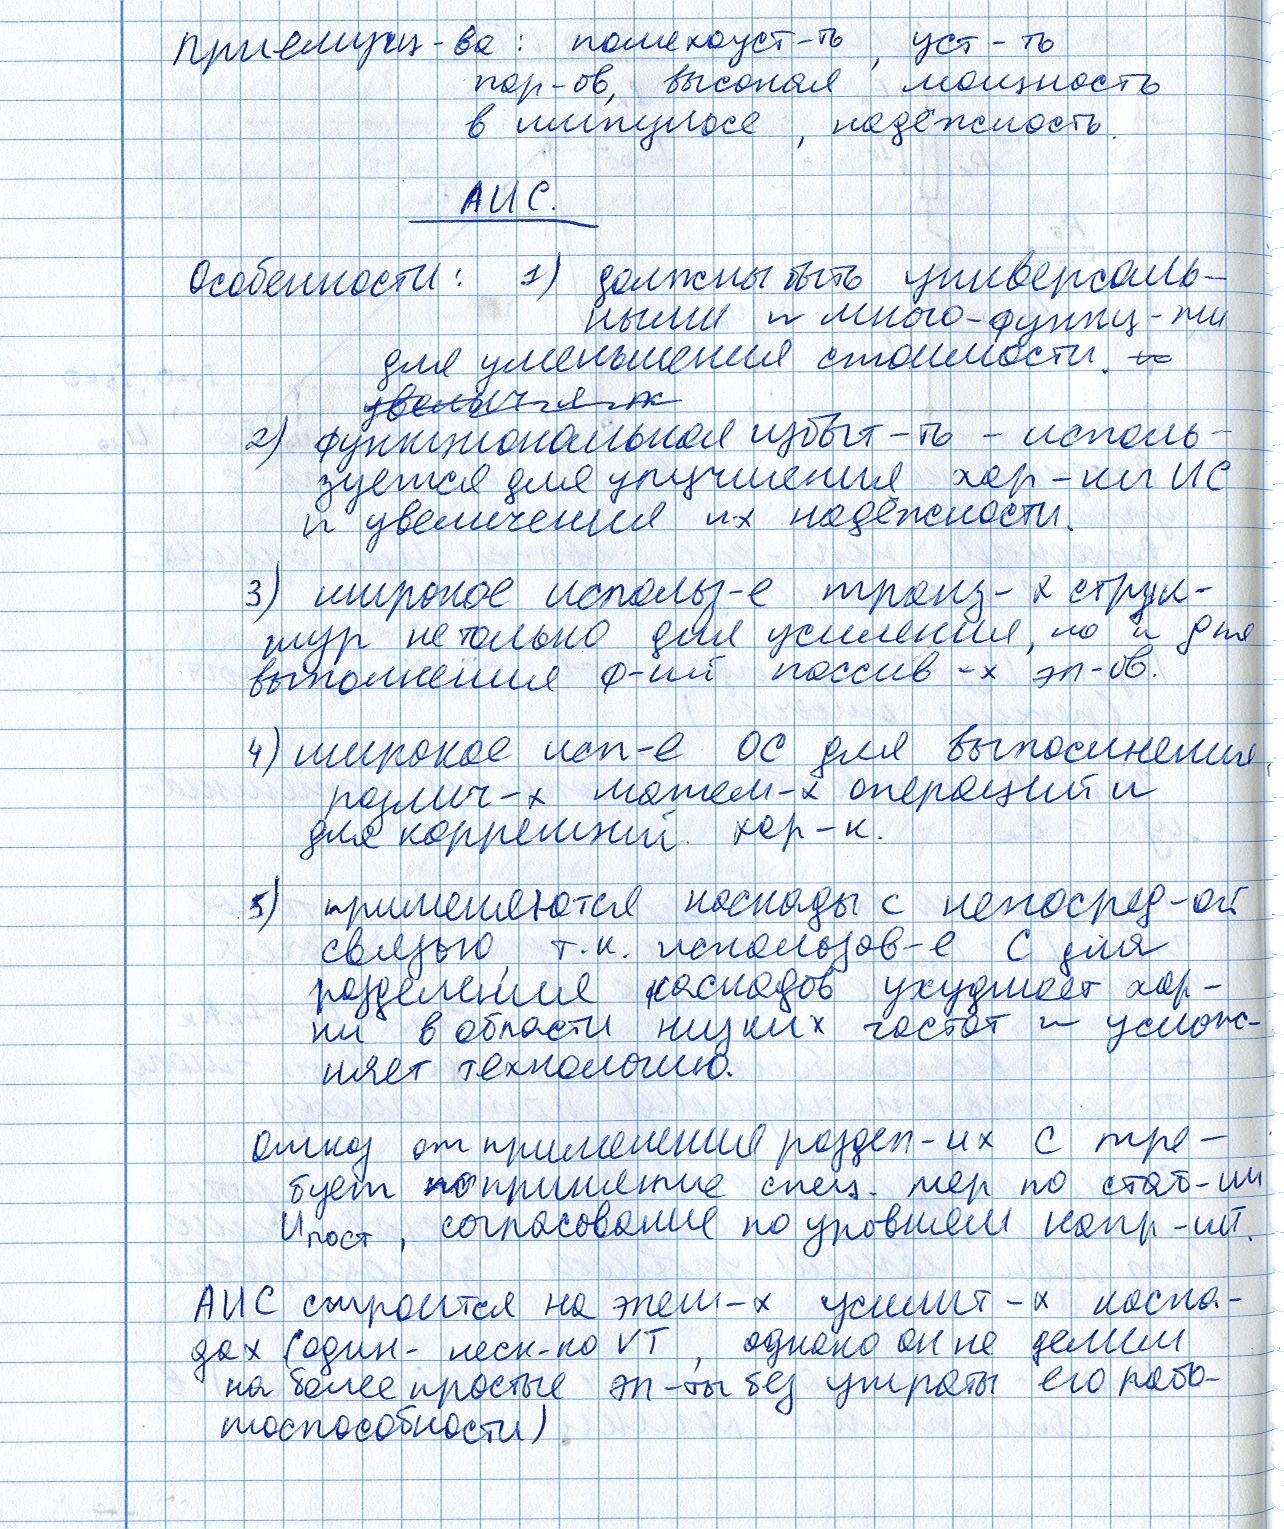 Приемущ-ва: помехоуст-ть, уст-ть
пар-ов, высокая мощность
в импульсе, надёжность.
АИС.
Особенности: 1) должны быть универсаль-
ными и много-функц-ми
для уменьшения стоимости.
2) функциональная избыт-ть - исполь-
зуется для улучшения хар-ки ИС
и увеличения их надёжности.
3) широкое использ-е транз-х струк-
тур не только для усиления, но и для
выполнения ф-ий пассив-х эл-ов.
4) широкое исп-е ОС для выполнения
различ-х матем-х операций и
для коррекций хар-к.
5) применяются каскады с непосред-ой
связью, т.к. использов-е С для
разделения каскадов ухудшает хар-
ки в области низких частот и услож-
няет технологию.
Отказ от применения раздел-их С тре-
бует применение спец. мер по стаб-ии
Uпост, согласование по уровням напр-ий.
АИС строится на элем-х усилит-х каска-
дах (один- неск-ко VT, однако он не делим
на более простые эл-ты без утраты его рабо-
тоспособности)